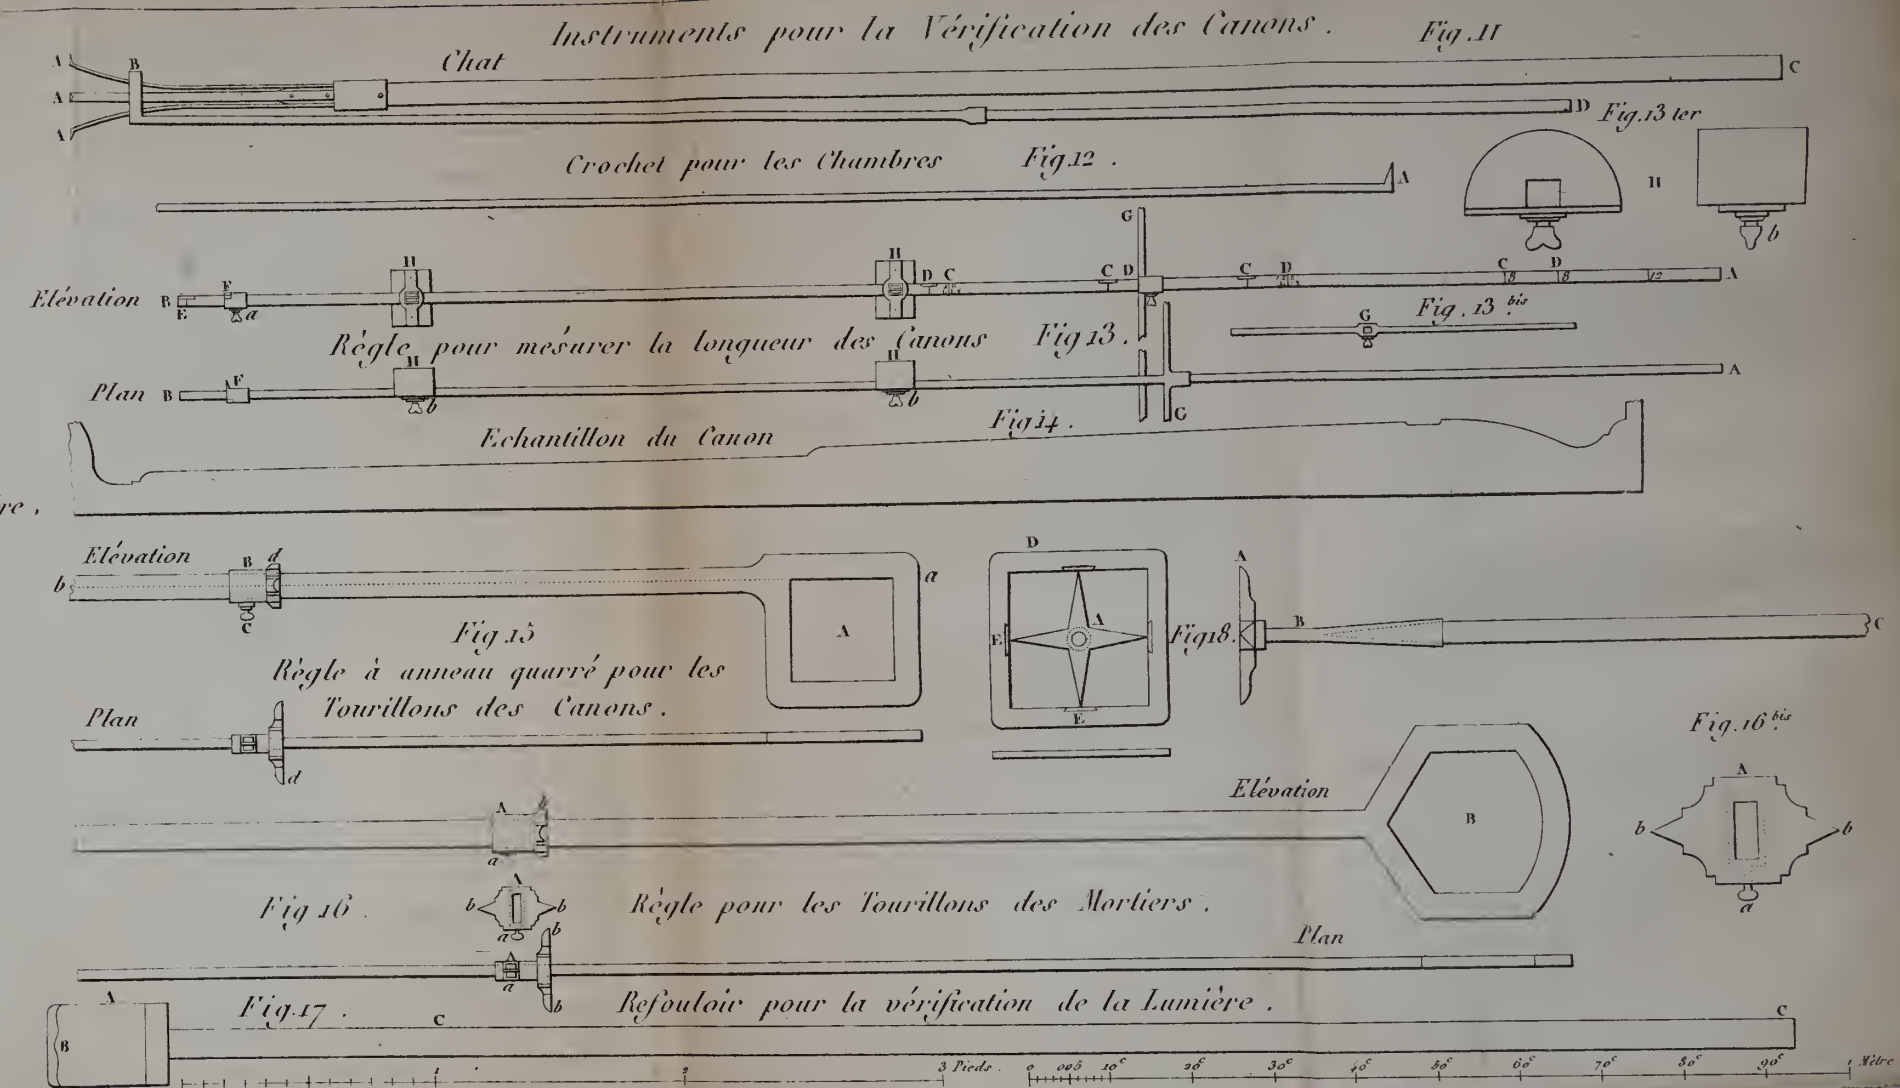 Instruments pour la Vérification des Canons.
Fig. 11
Chat
A
B
A
A
C
D
Fig. 13 ter
Crochet pour les Chambres Fig. 12.
A
H
b
G
Elévation B
E
F
a
H
H
D
C
C
D
C
D
C
8
D
8
12
A
Fig. 13 bis
G
Règle pour mésurer la longueur des Canons Fig. 13.
Plan B
F
H
b
H
b
G
A
Echantillon du Canon
Fig. 14.
re.
Elévation
b
B
d
C
a
A
Fig. 15
Règle à anneau quarré pour les
Tourillons des Canons.
Plan
d
D
A
E
E
Fig 18.
A
B
C
Fig. 16 bis
A
b
b
a
Elévation
A
b
a
B
Fig 16.
A
b
b
a
Règle pour les Tourillons des Mortiers.
Plan
A
a
b
b
Fig. 17.
Refouloir pour la vérification de la Lumière.
A
B
C
C
1
2
3 Pieds.
0
005
10c
20c
30c
40c
50c
60c
70c
80c
90c
1 Mètre